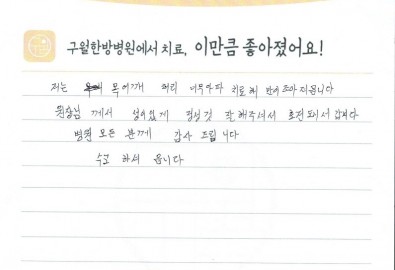 구월한방병원에서 치료, 이만큼 좋아졌어요!
저는 목어깨 허리 너무아파 치료해 많이조아지읍니다
원장님 께서 성이있게 정성것 잘해주셔서 호전되서 갑니다
병원 모든 분께 감사 드립니다
수고 하셔 읍니다